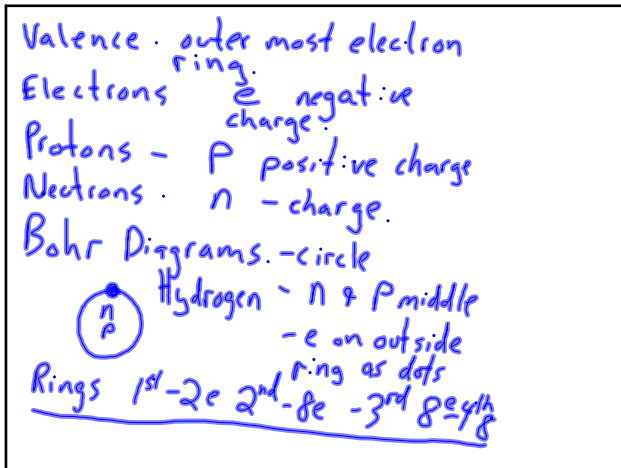 Valence . outer most electron
ring.
Electrons e negative
charge.
Protons - P positive charge
Neutrons . n - charge.
Bohr Diagrams. - circle
Hydrogen - n & P middle
n
P
- e on outside
ring as dots
Rings 1st - 2e 2nd - 8e - 3rd 8e - 4th
8